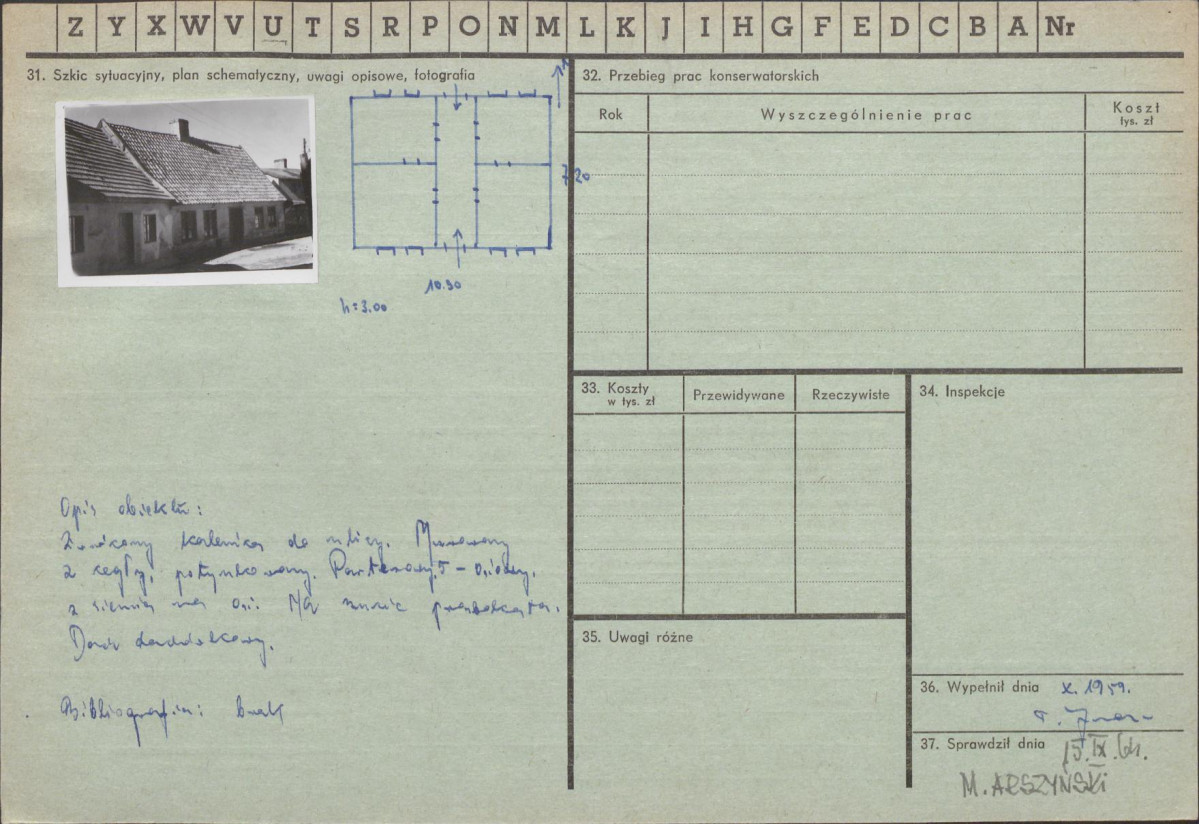 Z Y X W V U T S R P O N M L K J I H G F E D C B A Nr
31. Szkic sytuacyjny, plan schematyczny, uwagi opisowe, fotografia
7.20
10.30
h = 3.00
Opis obiektu:
Zwrócony kalenicą do ulicy. Murowany
z cegły, potynkowany. Parterowy, 5-osiowy,
z sienią na osi. Na rzucie prostokąta.
Dach dwuspadowy.
Bibliografia: brak
32. Przebieg prac konserwatorskich
Rok Wyszczególnienie prac Koszt
tys. zł
33. Koszty
w tys. zł
Przewidywane Rzeczywiste
34. Inspekcje
35. Uwagi różne
36. Wypełnił dnia X. 1959.
37. Sprawdził dnia 15.IX.64.
M. ARSZYŃSKI